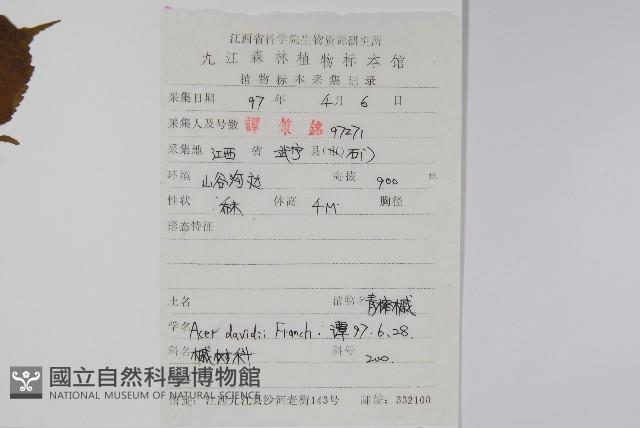 江西省科学院生物资源研究所
九江森林植物标本馆
植物标本采集记录
采集日期 97 年 4 月 6 日
采集人及号数 譚策銘 97271
采集地 江西 省 武宁 县(市) 石门
环境 山谷沟边 海拔 900 m
性状 乔木 体高 4M 胸径
形态特征
土名 植物名 青榨槭
学名 Acer davidii Franch. 譚 97.6.28.
科名 槭树科 科号 200.
國立自然科學博物館
NATIONAL MUSEUM OF NATURAL SCIENCE
江西九江县沙河老街143号 邮编: 332100